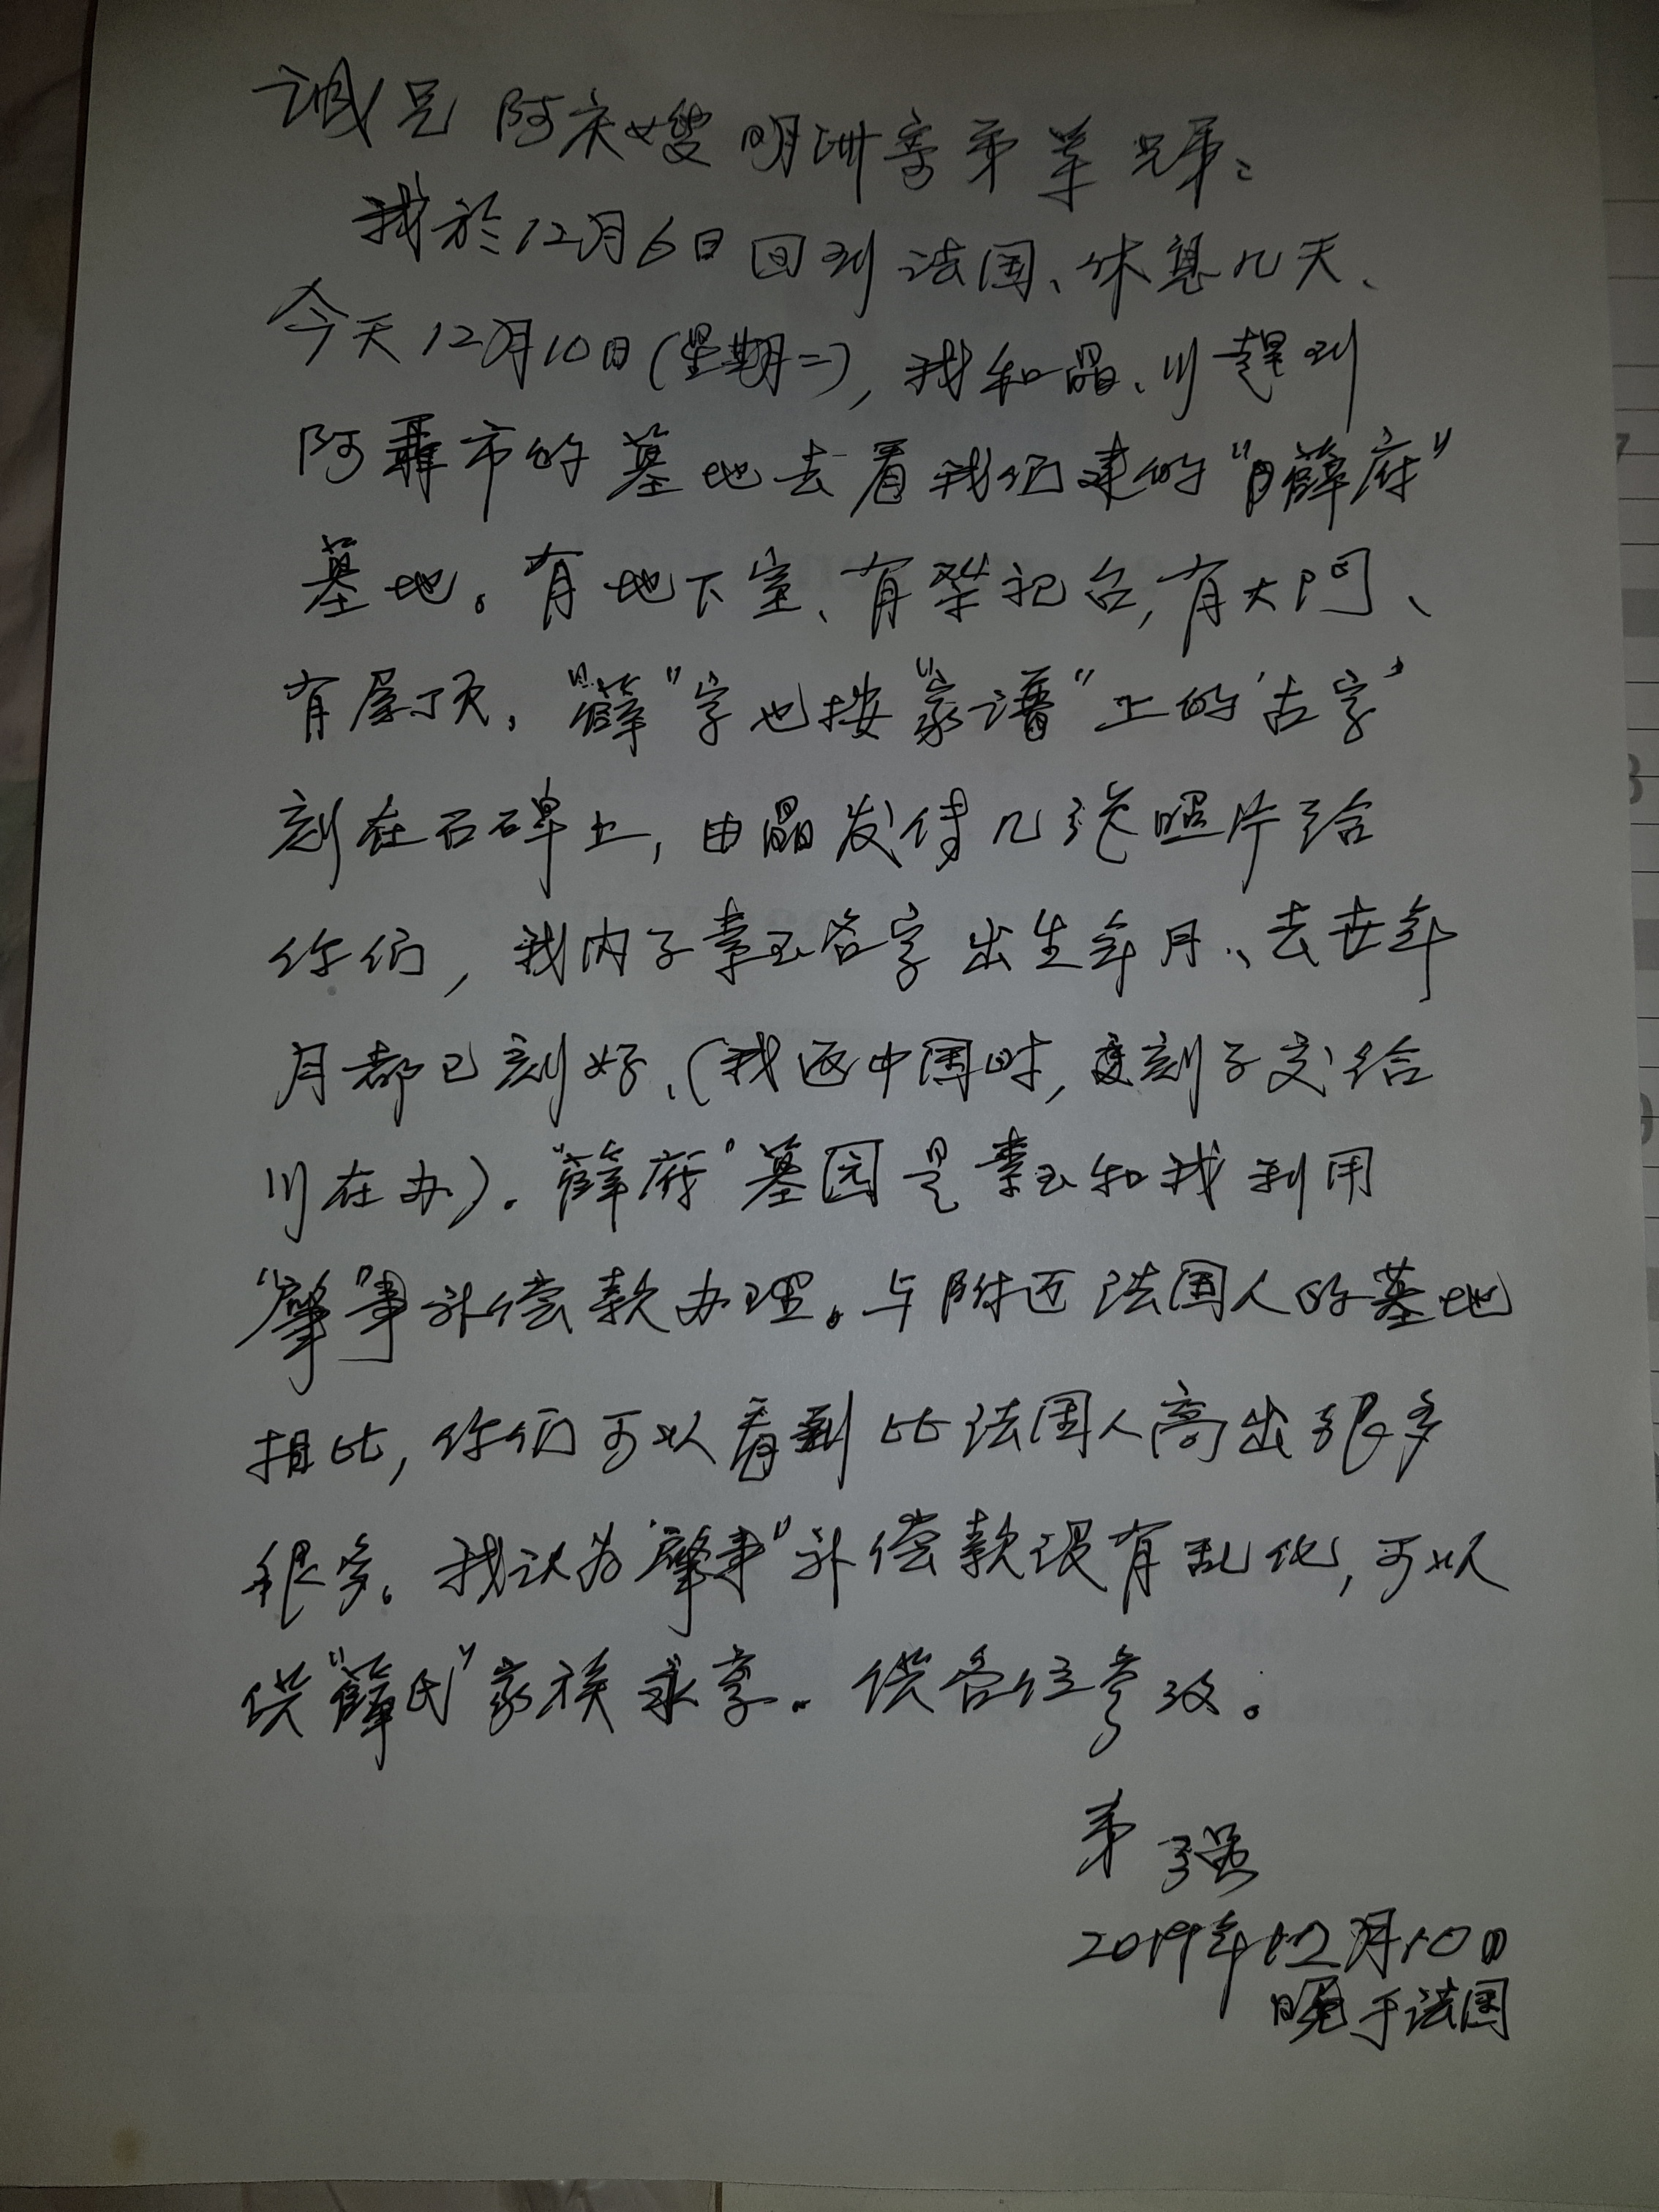 诚兄 阿庆嫂 明洲 弟 兄弟：
我於12月6日回到法国、休息几天、
今天12月10日(星期二), 我和晶、川赶到
阿聶市的墓地去看我们建的“薛府”
墓地。有地下室、有祭祀台, 有大门、
有屋顶, “薛”字也按“家谱”上的‘古字’
刻在石碑上, 由晶发传几张照片给
你们, 我内子素玉名字出生年月、去世年
月都已刻好、(我返中国时, 刻字交给
川在办)。“薛府”墓园是素玉和我利用
“肇事”补偿款办理。与附近法国人的墓地
相比, 你们可以看到比法国人高出很多
很多。我认为“肇事”补偿款没有乱化, 可以
供“薛氏”家族永享。供各位参攷。
弟 强
2019年12月10日
晚于法国